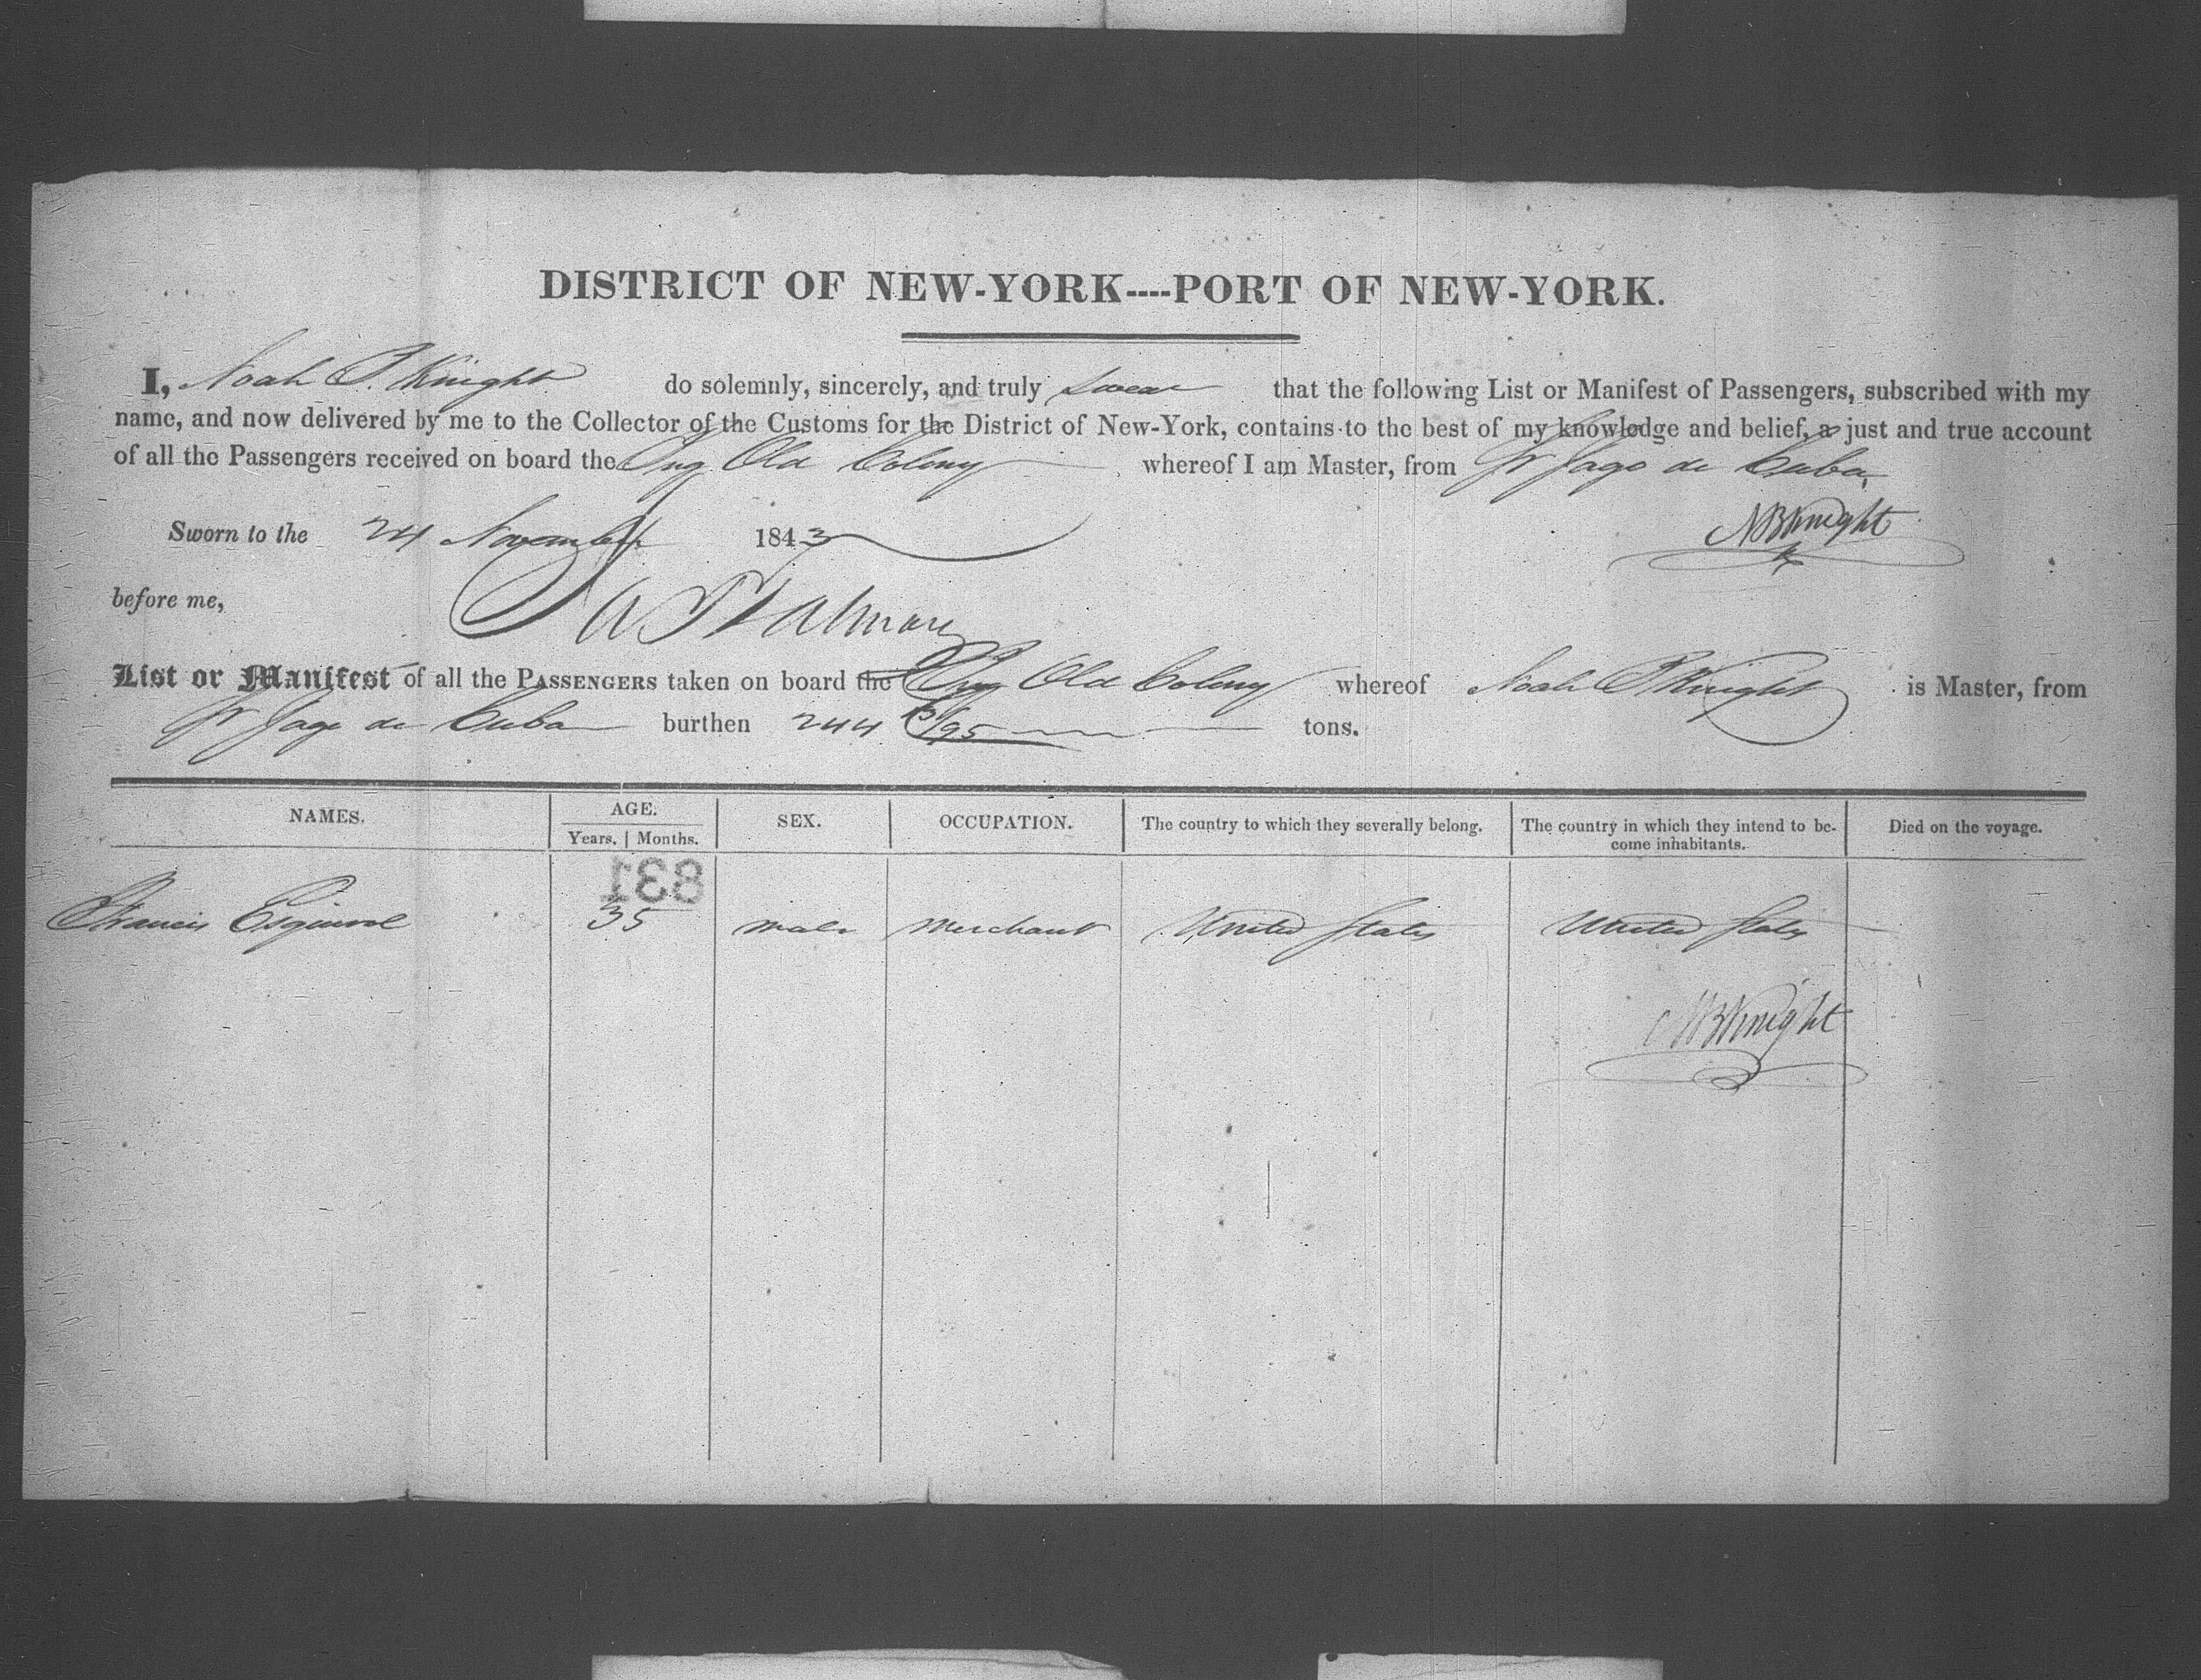 DISTRICT OF NEW-YORK----PORT OF NEW-YORK.
I, Noah B. Knight do solemnly, sincerely, and truly swear that the following List or Manifest of Passengers, subscribed with my
name, and now delivered by me to the Collector of the Customs for the District of New-York, contains to the best of my knowledge and belief, a just and true account
of all the Passengers received on board the Brig Old Colony whereof I am Master, from St Jago de Cuba,
Sworn to the 24 November 1843 NB Knight
before me,
List or Manifest of all the PASSENGERS taken on board the Brig Old Colony whereof Noah B Knight is Master, from
St Jago de Cuba burthen 244 /95 tons.
NAMES. AGE. SEX. OCCUPATION. The country to which they severally belong. The country in which they intend to be- Died on the voyage.
Years. | Months. come inhabitants.
831
Francis 35 male Merchant United States United States
NB Knight